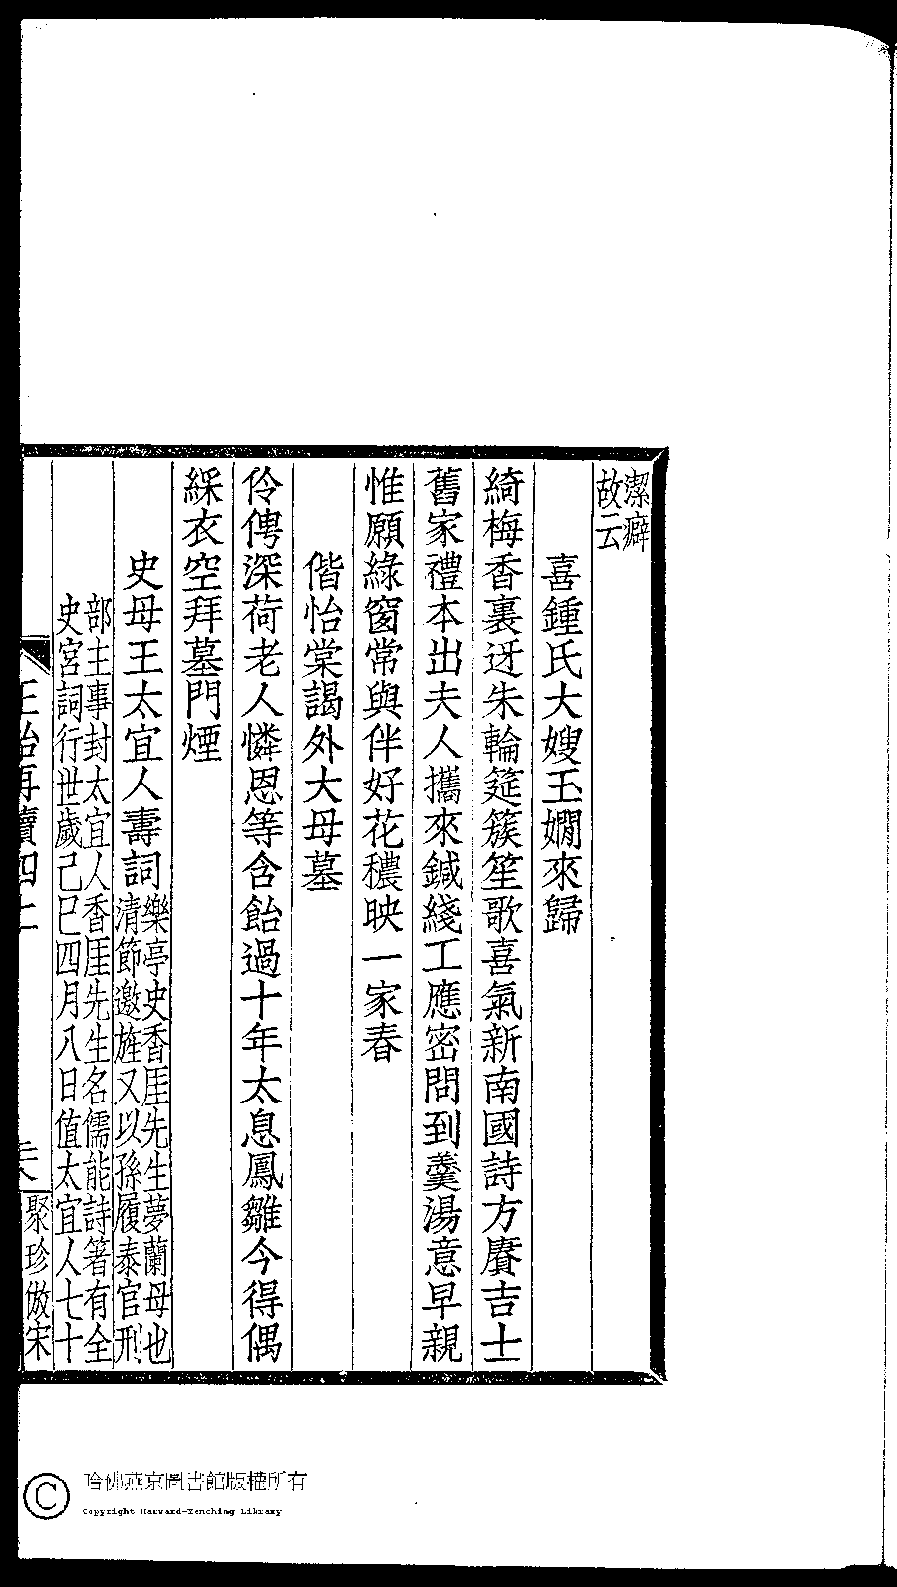 潔癖
故云
喜鍾氏大嫂玉嫺來歸
綺梅香裏迓朱輪筵簇笙歌喜氣新南國詩方賡吉士
舊家禮本出夫人攜來鍼綫工應密問到羹湯意早親
惟願綠窗常與伴好花穠映一家春
偕怡棠謁外大母墓
伶俜深荷老人憐恩等含飴過十年太息鳳雛今得偶
綵衣空拜墓門煙
史母王太宜人壽詞
樂亭史香厓先生夢蘭母也
清節邀旌又以孫履泰官刑
部主事封太宜人香厓先生名儒能詩箸有全
史宮詞行世歲己巳四月八日值太宜人七十
再續四上
聚珍倣宋
哈佛燕京圖書館版權所有
Copyright Harvard-Yenching Library